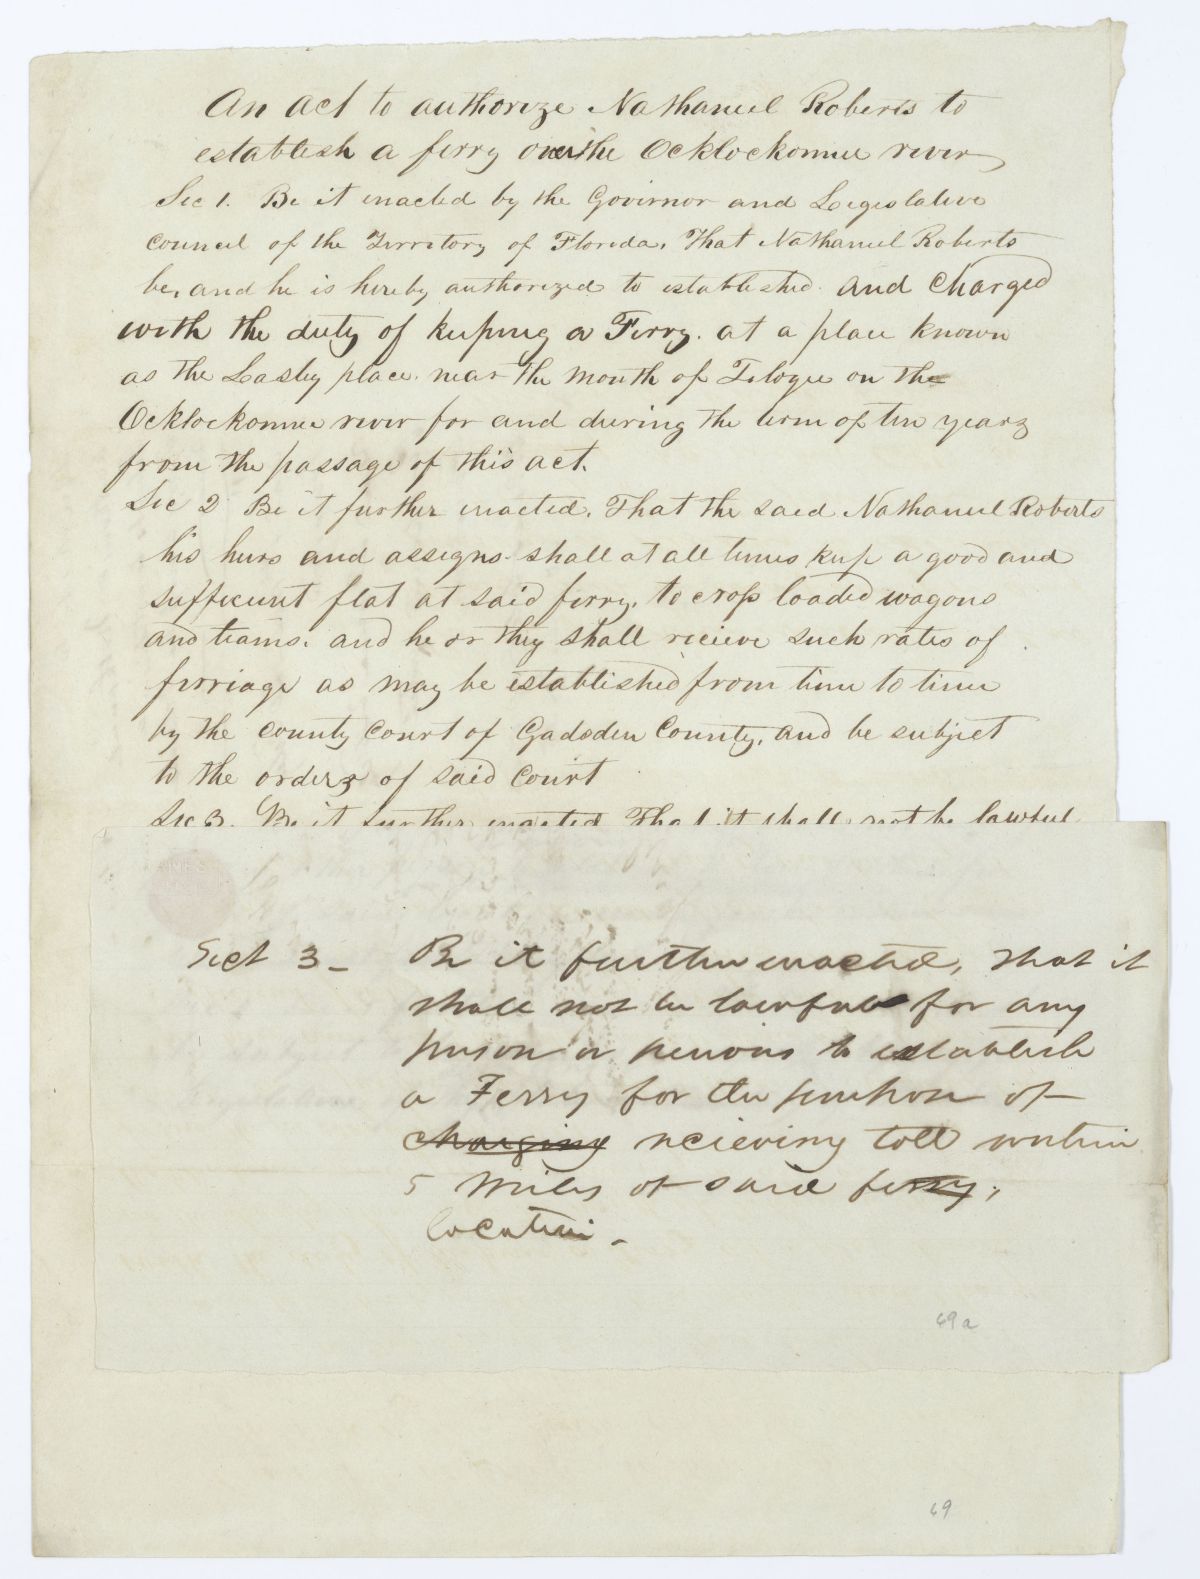 An act to authorize Nathaniel Roberts to
establish a ferry over the Ocklockonnee river
Sec 1. Be it enacted by the Governor and Legislative
council of the Territory of Florida, That Nathaniel Roberts
be, and he is hereby authorized to established and Charged
with the duty of keeping a Ferry. at a place known
as the Lasley place. near the mouth of Telogee on the
Ocklockonnee river for and during the term of ten years
from the passage of this act.
Sec 2 Be it further enacted, That the said Nathaniel Roberts
his heirs and assigns shall at all times keep a good and
sufficient flat at said ferry, to cross loaded wagons
and teams. and he or they shall recieve such rates of
ferriage as may be established from time to time
by the county court of Gadsden County, and be subject
to the orders of said court
Sec 3. Be it further enacted That it shall not be lawful
Sect 3 - Be it further enacted, that it
shall not be lawful for any
person or persons to establish
a Ferry for the purpose of
charging recieving toll within
5 Miles of said ferry,
location -
69a
69